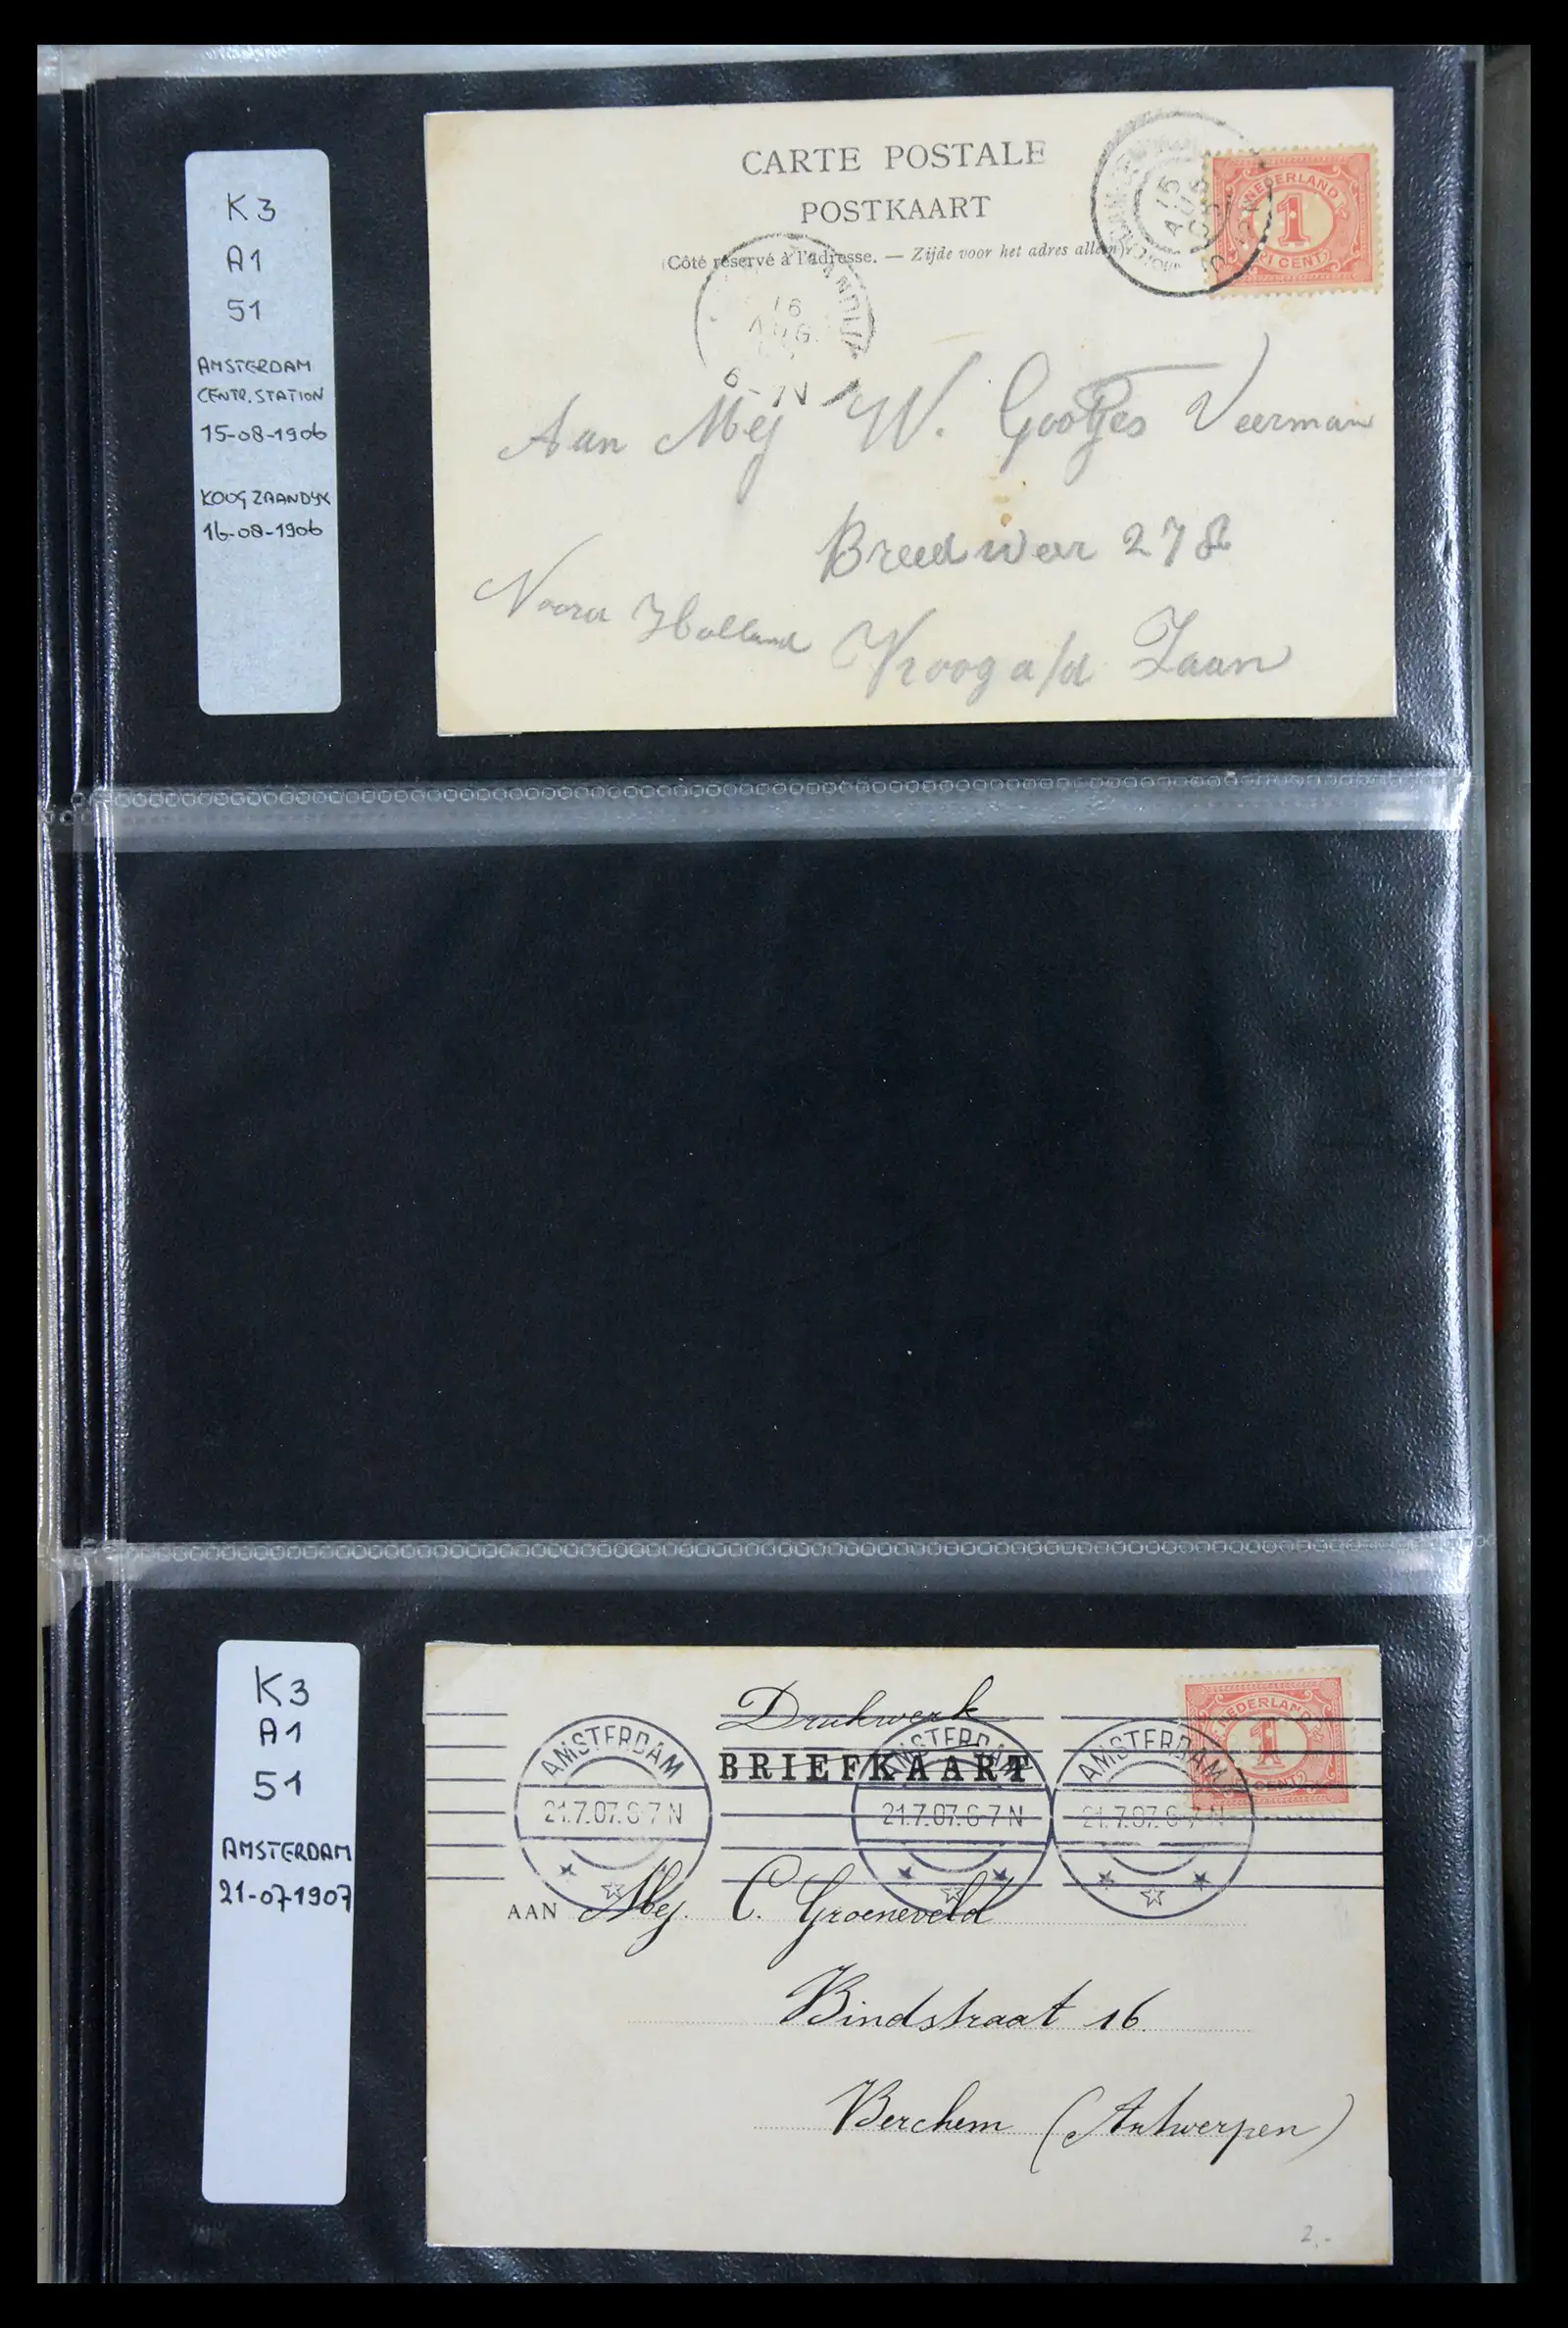 K3
A1
51
AMSTERDAM
CENTR. STATION
15-08-1906
KOOG ZAANDYK
16-08-1906
CARTE POSTALE
POSTKAART
(Côté réservé à l'adresse. — Zijde voor het adres alleen)
15
AUG
NEDERLAND
1
(1 CENT)
16
AUG
6-7N
Aan Mej W. Gootjes Veerman
Breedweer 278
Noord Holland Kroog a/d Zaan
K3
A1
51
AMSTERDAM
21-07-1907
Drukwerk
BRIEFKAART
NEDERLAND
1
CENT
AMSTERDAM
21.7.07.6-7N
AMSTERDAM
21.7.07.6-7N
AMSTERDAM
21.7.07.6-7N
AAN Mej. C. Groeneveld
Bindstraat 16.
Berchem (Antwerpen)
2,-